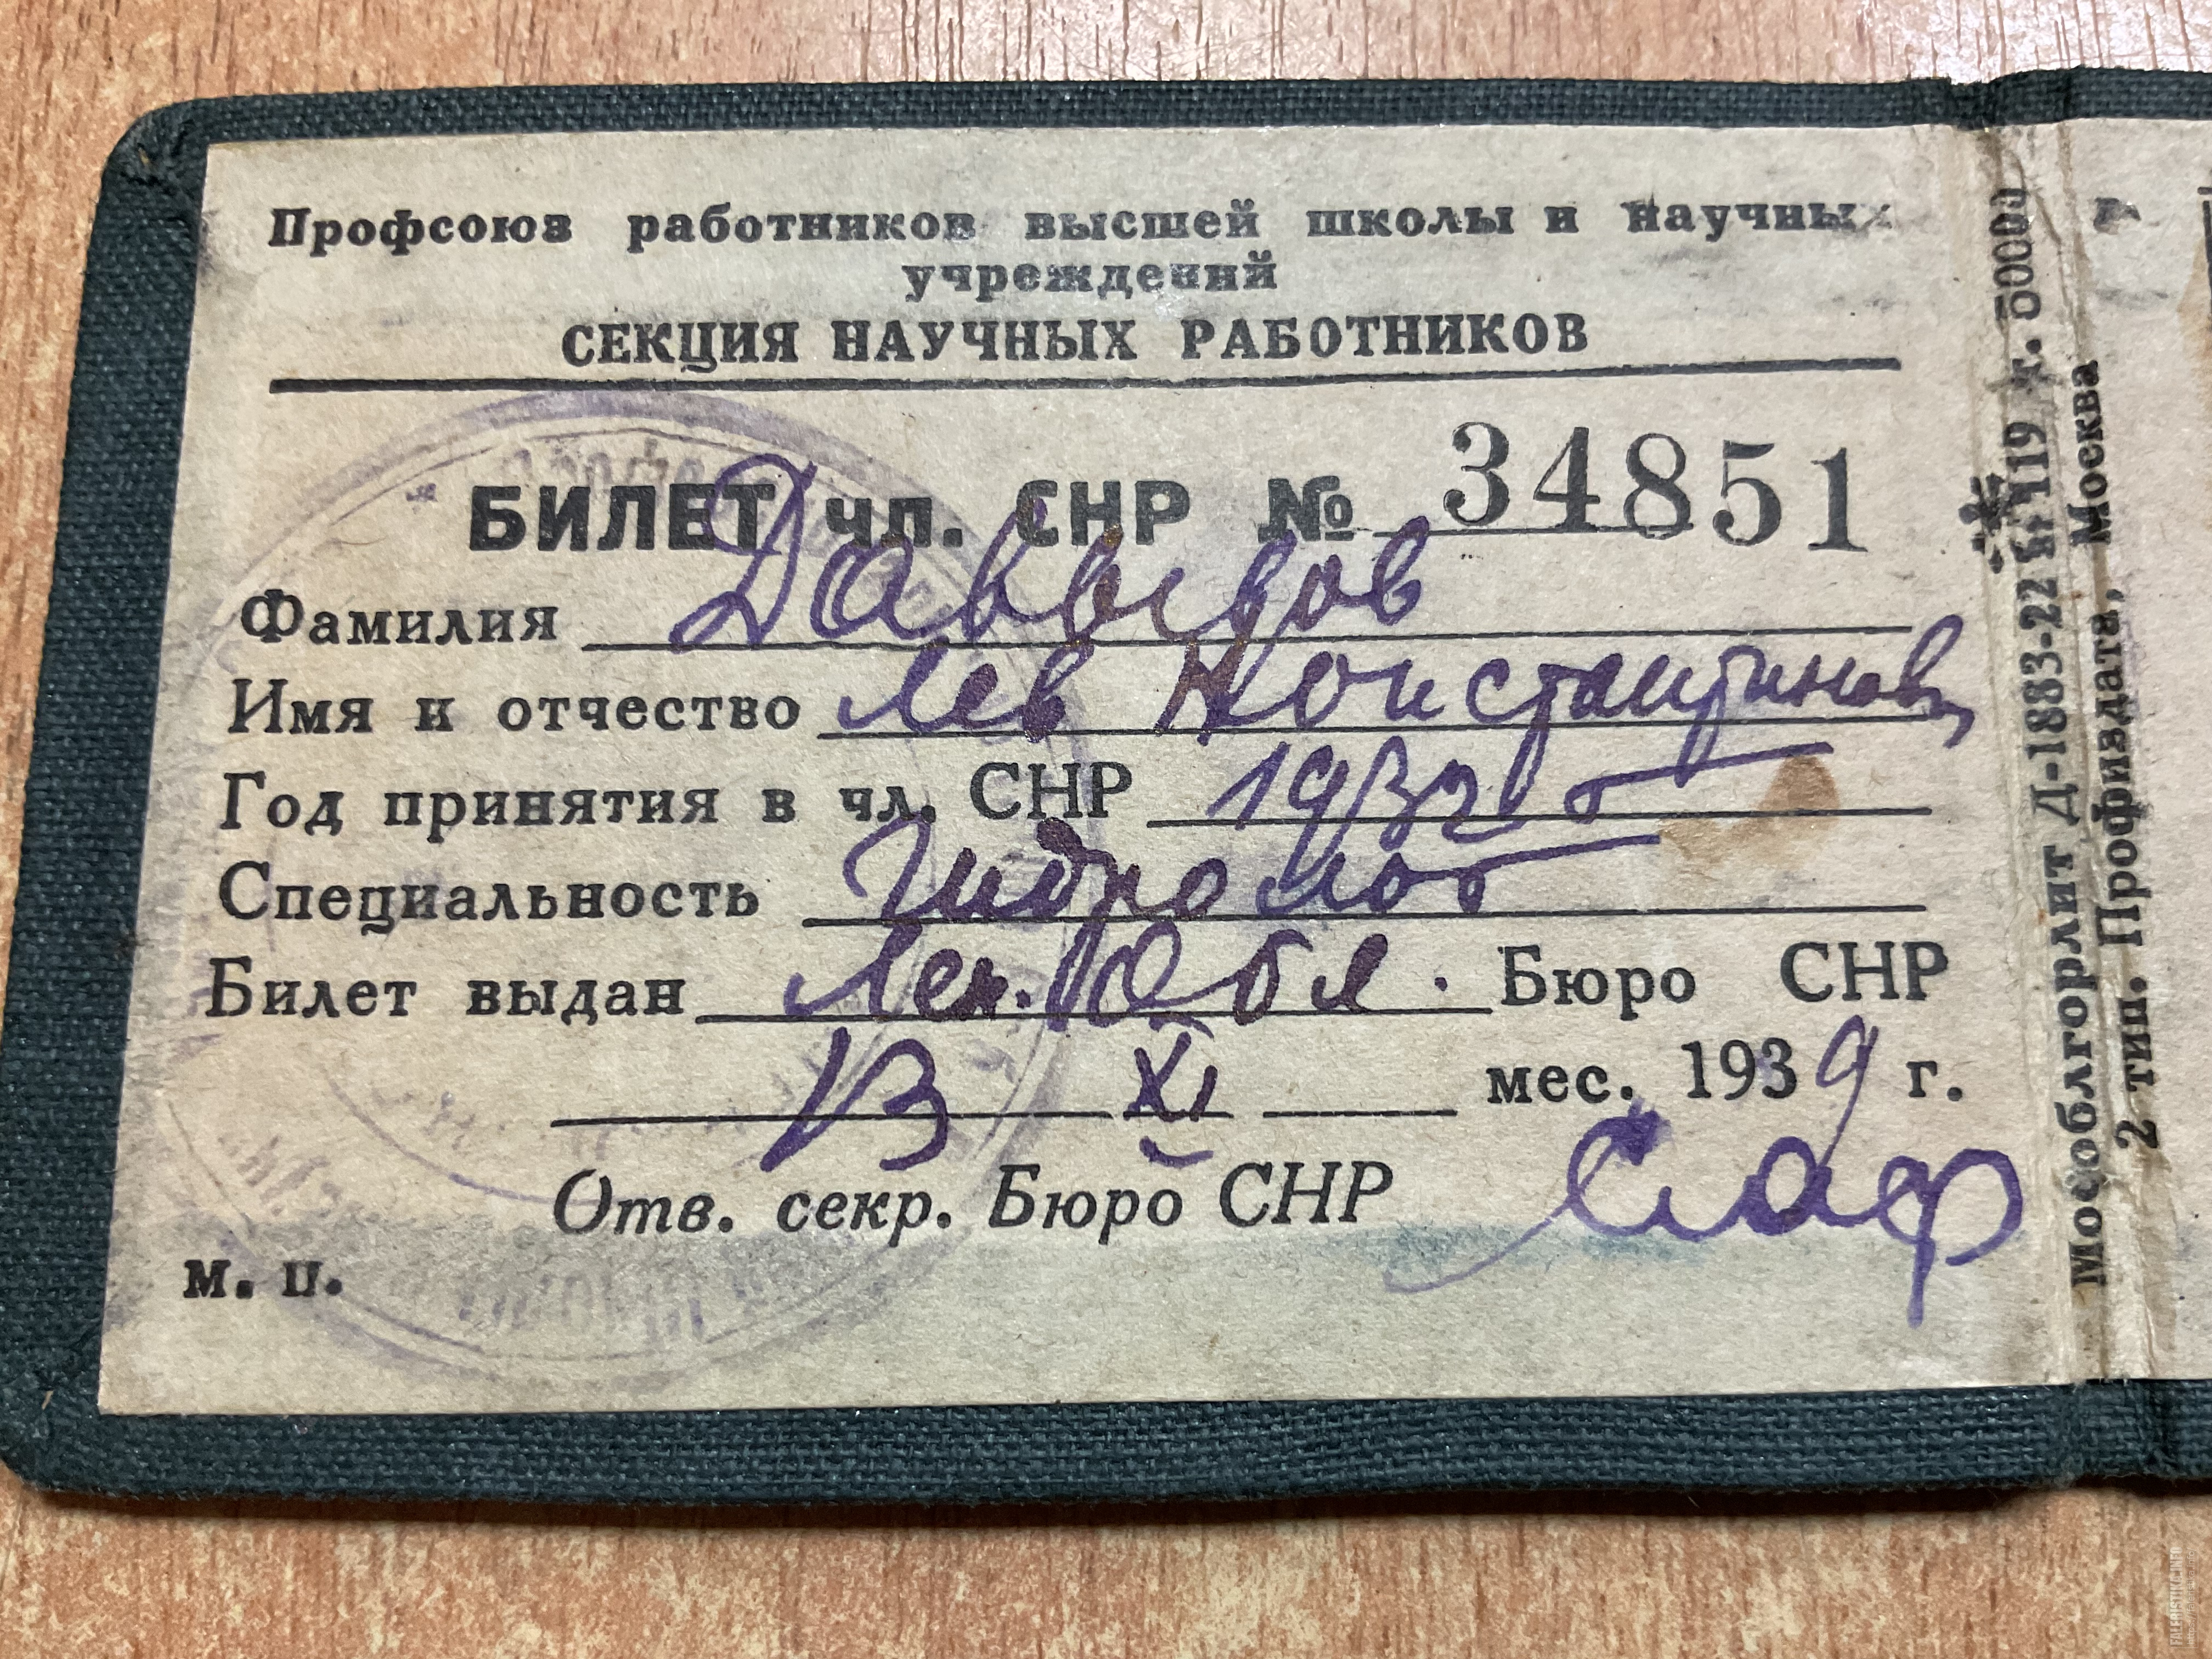 Профсоюз работников высшей школы и научных
учреждений
СЕКЦИЯ НАУЧНЫХ РАБОТНИКОВ
БИЛЕТ чл. СНР № 34851
Фамилия Давыдов
Имя и отчество Лев Константинович
Год принятия в чл. СНР 1932 г
Специальность Гидролог
Билет выдан Лен. Обл. Бюро СНР
13 XI мес. 1939 г.
Отв. секр. Бюро СНР
м. п.
Мособлгорлит Д-1883-22 119 т. 50000
2 тип. Профиздата, Москва
FALERISTIKA.INFO